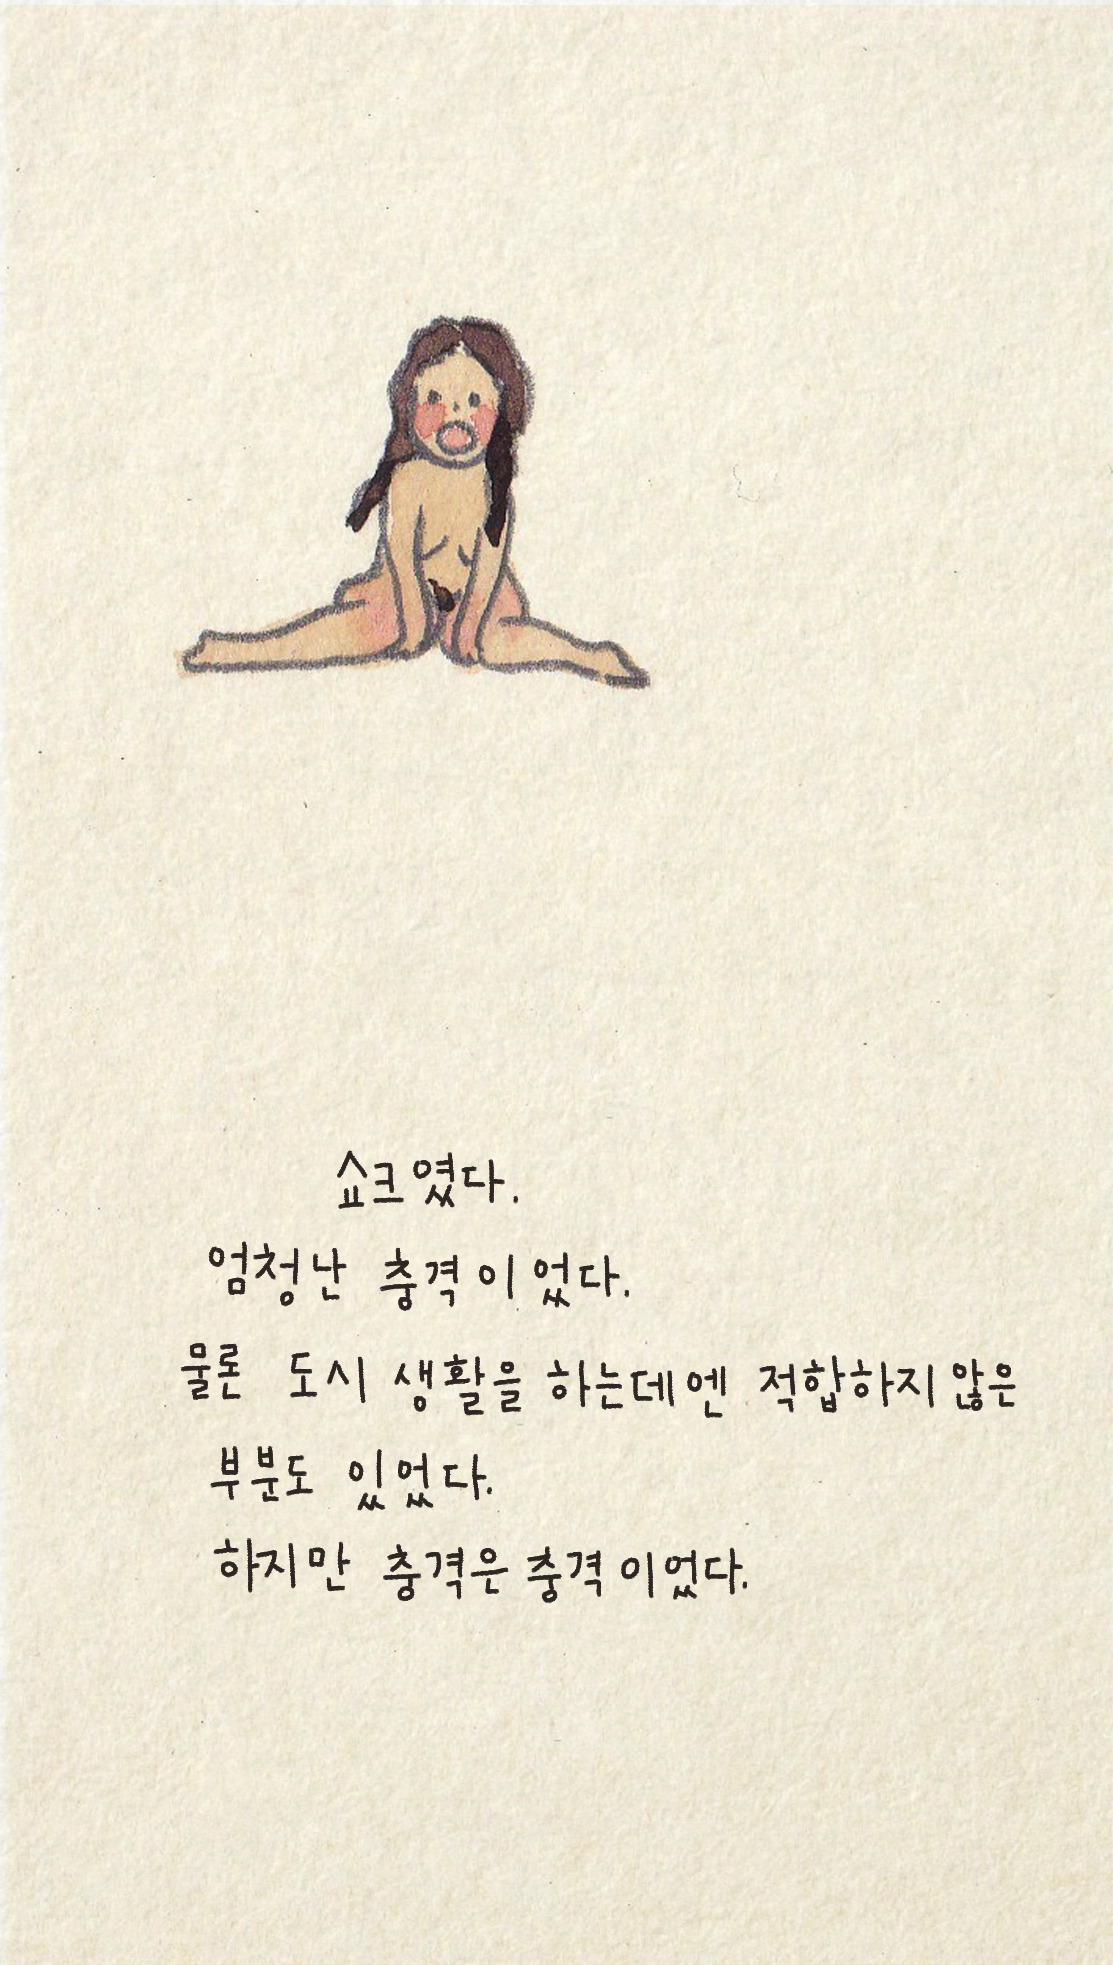 쇼크였다.
엄청난 충격이었다.
물론 도시 생활을 하는데엔 적합하지 않은
부분도 있었다.
하지만 충격은 충격이었다.